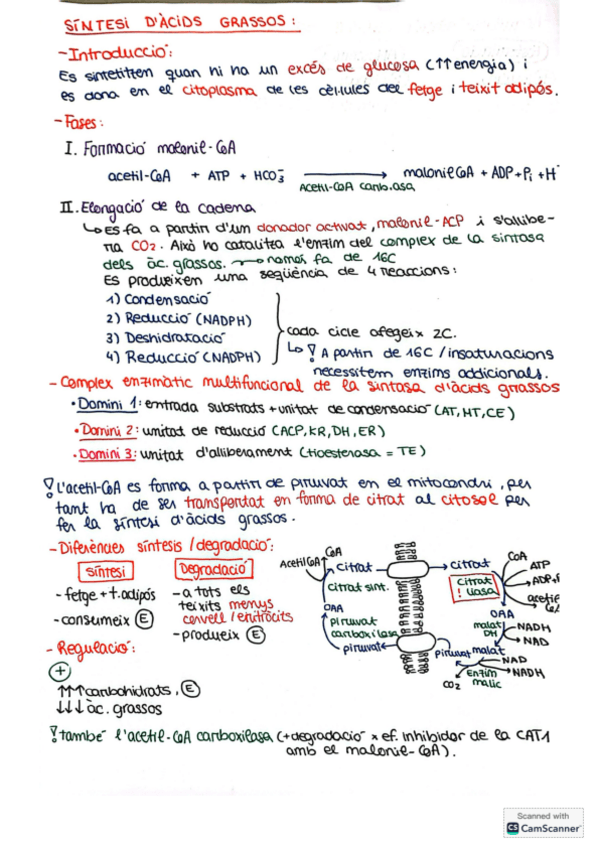 SÍNTESI D'ÀCIDS GRASSOS:
- Introducció:
Es sintetitzen quan hi ha un excés de glucosa (↑↑energia) i
es dona en el citoplasma de les cèl·lules del fetge i teixit adipós.
- Fases:
I. Formació malonil-CoA
acetil-CoA + ATP + HCO3- → malonil CoA + ADP + Pi + H+
Acetil-CoA carb.asa
II. Elongació de la cadena
↳ Es fa a partir d'un donador activat, malonil-ACP i s'allibe-
ra CO2. Això ho catalitza l'enzim del complex de la sintasa
dels àc. grassos. → només fa de 16C
Es produeixen una seqüència de 4 reaccions:
1) Condensació
2) Reducció (NADPH)
3) Deshidratació
4) Reducció (NADPH)
cada cicle afegeix 2C.
↳ ! A partir de 16C / insaturacions
necessitem enzims addicionals.
- Complex enzimàtic multifuncional de la sintasa d'àcids grassos
• Domini 1: entrada substrats + unitat de condensació (AT, MT, CE)
• Domini 2: unitat de reducció (ACP, KR, DH, ER)
• Domini 3: unitat d'alliberament (tioesterasa = TE)
! L'acetil-CoA es forma a partir de piruvat en el mitocondri, per
tant ha de ser transportat en forma de citrat al citosol per
fer la síntesi d'àcids grassos.
- Diferències síntesis / degradació:
Síntesi
- fetge + t. adipós
- consumeix E
Degradació
- a tots els
teixits menys
cervell / eritròcits
- produeix E
CoA
Acetil CoA
citrat
citrat sint.
OAA
piruvat
carboxilasa
piruvat
citrat
citrat
! liasa
CoA
ATP
ADP+P
acetil
CoA
OAA
malat
DH
NADH
NAD
malat
piruvat
NAD
NADH
Enzim
màlic
CO2
- Regulació:
+
↑↑↑ carbohidrats, E
↓↓↓ àc. grassos
! també l'acetil-CoA carboxilasa (+degradació x ef. inhibidor de la CAT1
amb el malonil-CoA).
Scanned with
CS CamScanner